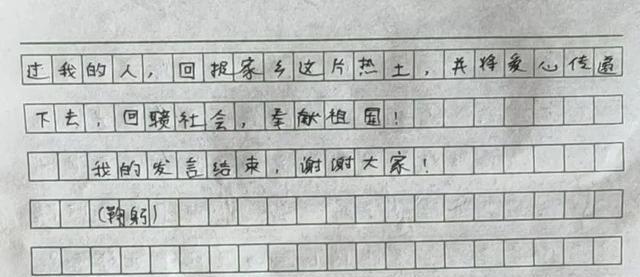 过我的人，回报家乡这片热土，并将爱心传递
下去，回馈社会，奉献祖国！
我的发言结束，谢谢大家！
（鞠躬）